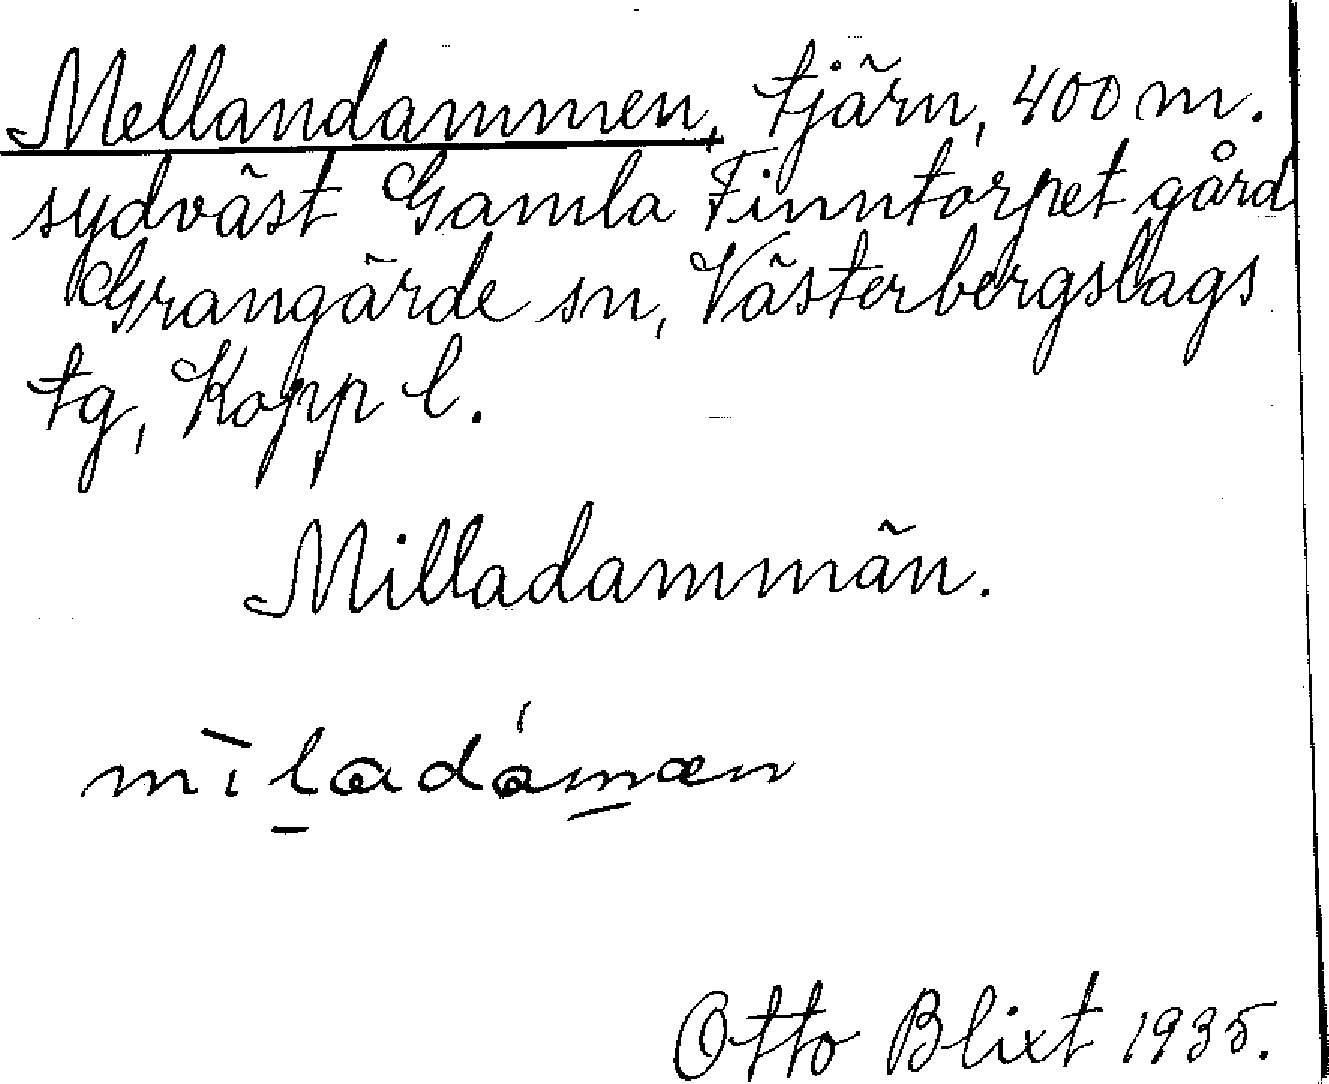 Mellandammen, tjärn, 400 m.
sydväst Gamla Finntorpet gård
Grangärde sn, Västerbergslags
tg, Kopp l.
Milladammän.
mìladámæn
Otto Blixt 1935.